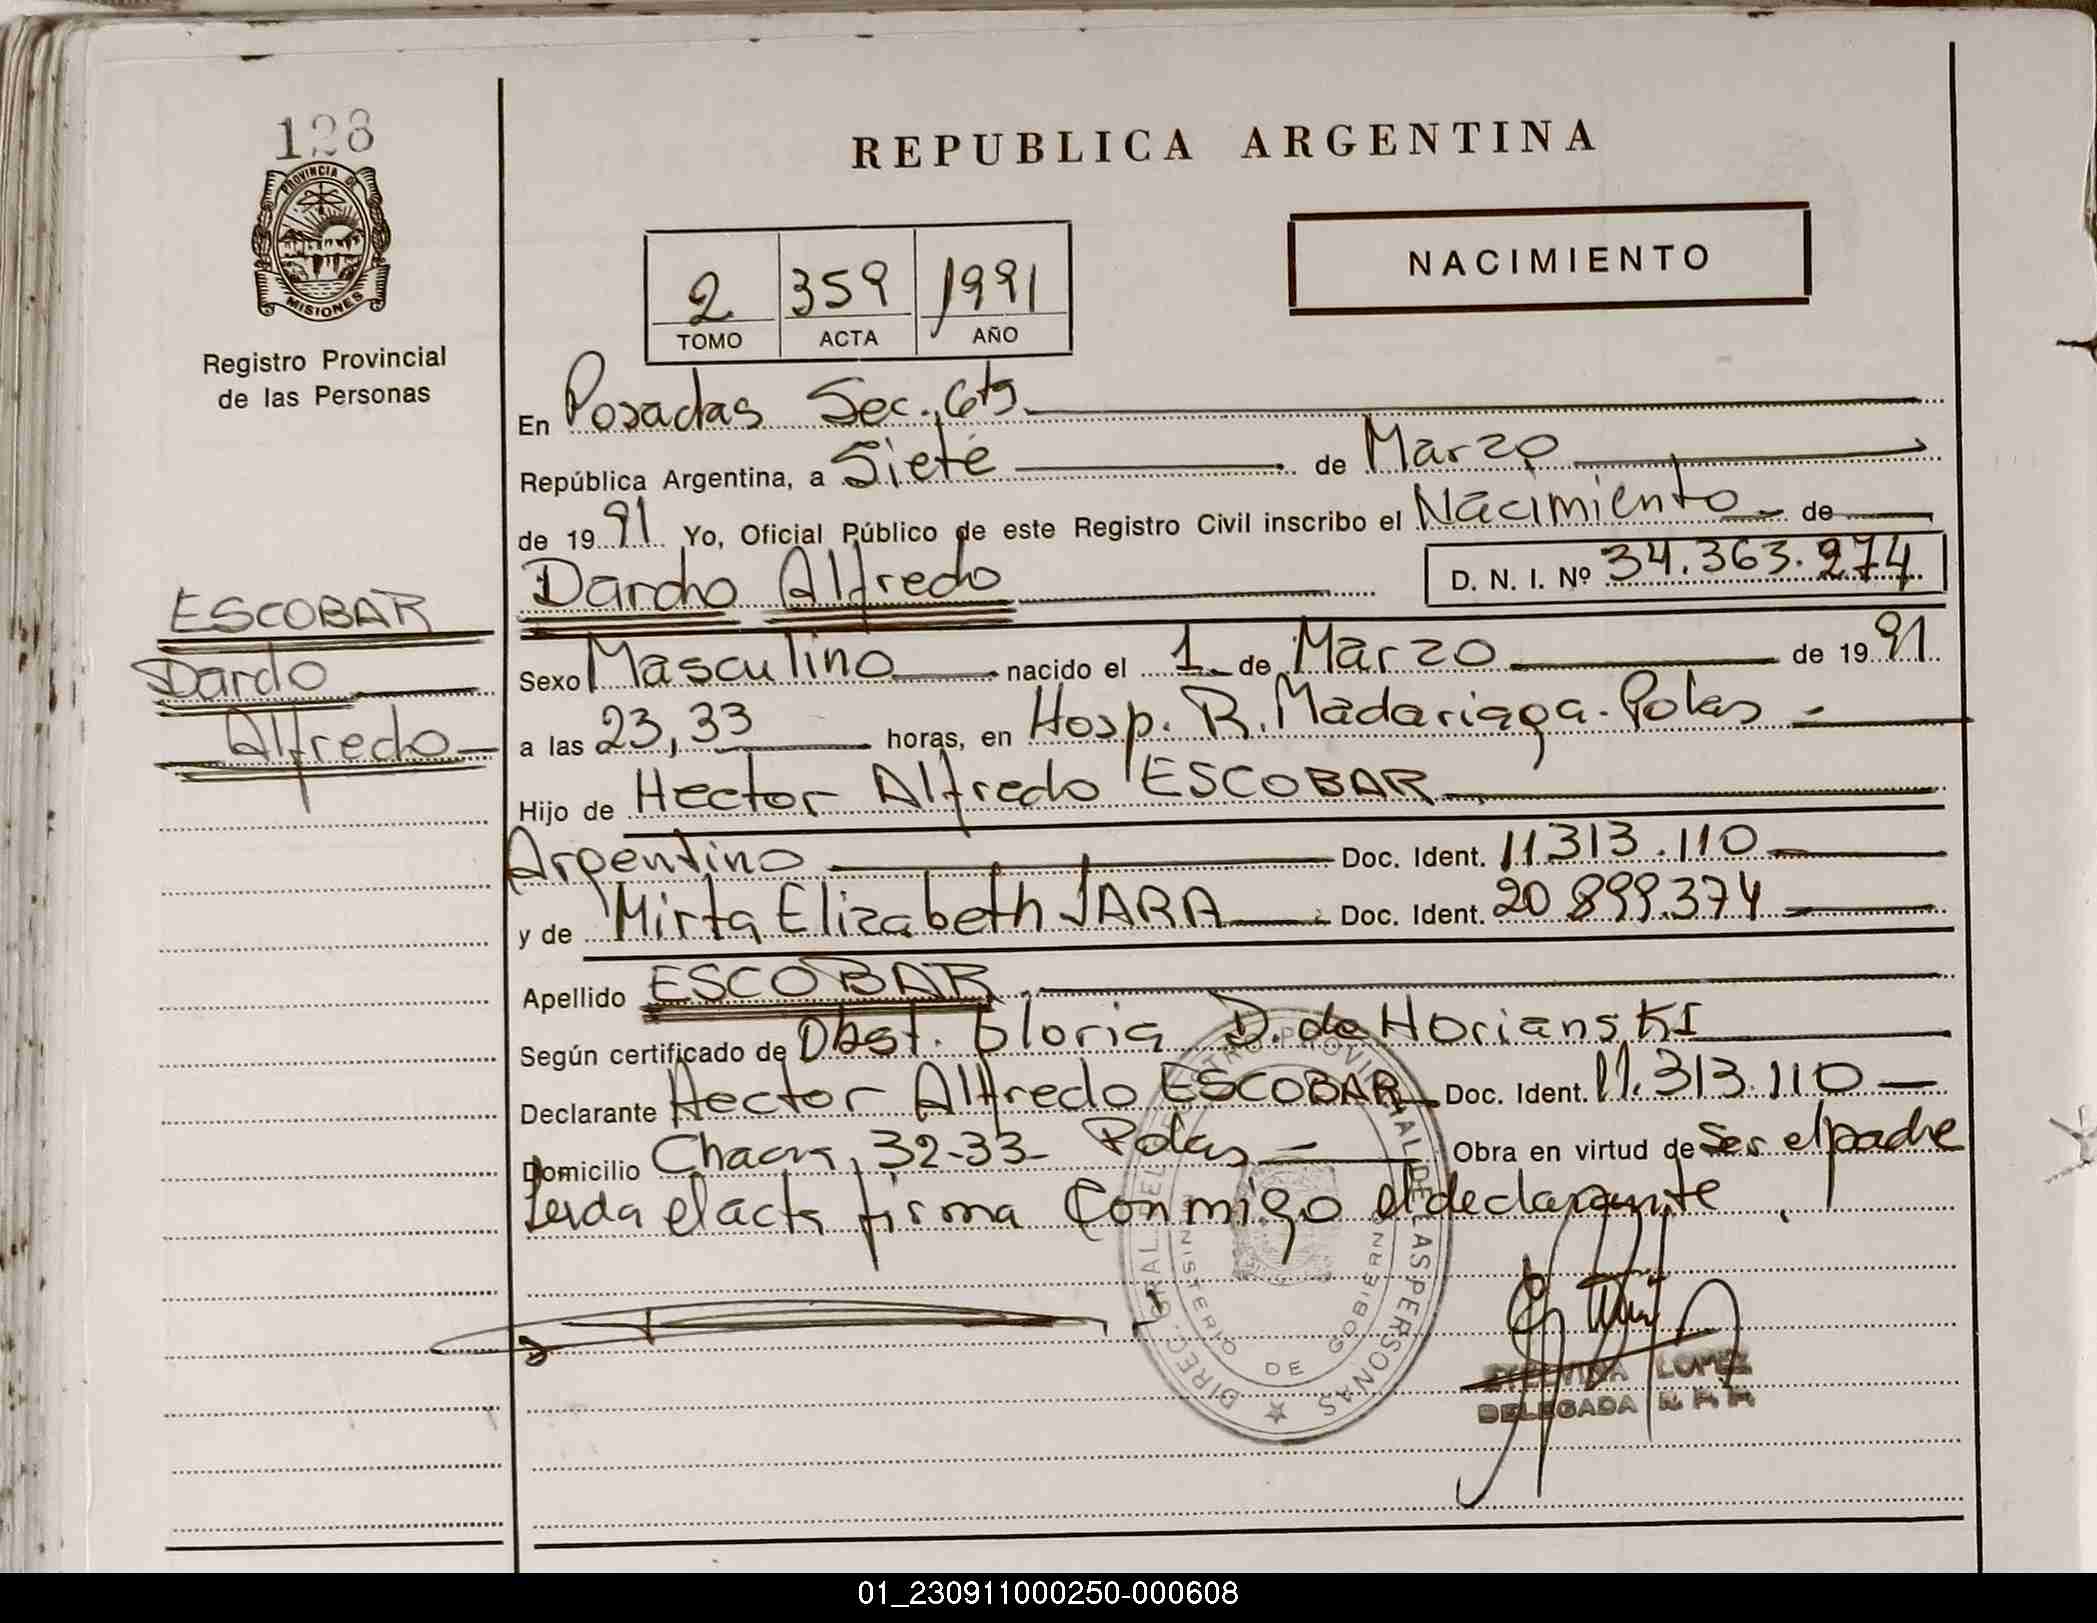 128
PROVINCIA DE
MISIONES
Registro Provincial
de las Personas
REPUBLICA ARGENTINA
NACIMIENTO
2 359 1991
TOMO ACTA AÑO
En Posadas Sec. 6ta
República Argentina, a Siete de Marzo
de 1991 Yo, Oficial Público de este Registro Civil inscribo el Nacimiento de
Dardo Alfredo D. N. I. Nº 34.363.274
ESCOBAR
Dardo
Alfredo
Sexo Masculino nacido el 1 de Marzo de 1991
a las 23,33 horas, en Hosp. R. Madariaga. Pdas
Hijo de Hector Alfredo ESCOBAR
Argentino Doc. Ident. 11313.110
y de Mirta Elizabeth JARA Doc. Ident. 20 899.374
Apellido ESCOBAR
Según certificado de Obst. Gloria D. de Horianski
Declarante Hector Alfredo ESCOBAR Doc. Ident. 11.313.110
Domicilio Chacra 32-33 Pdas Obra en virtud de Ser el padre
Leida el acta firma Conmigo el declarante
DIREC. GRAL. DEL REGISTRO PROVINCIAL DE LAS PERSONAS
MINISTERIO DE GOBIERNO
LOPEZ
DELEGADA
01_230911000250-000608